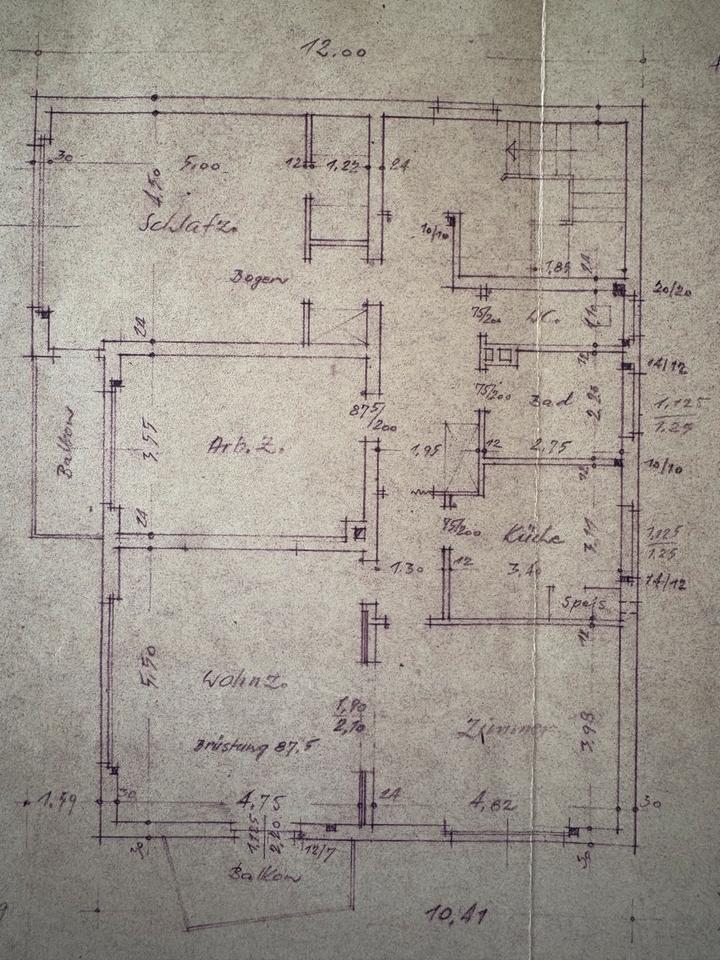 12.00
30
5,00
12
1,22
24
4,50
Schlafz.
10/10
Bogen
1,85
24
20/20
75/200
WC.
1,10
24
12
14/12
75/200
Bad
2,20
1,125
1.25
87 5/200
Balkon
3,55
Arb.Z.
1,95
12
2,75
10/10
12
24
75/200
Küche
1,125
1.25
1.30
12
3,40
14/12
Speis
12
5,50
Wohnz.
1,90
2,10
Zimmer
3,98
Brüstung 87.5
1,59
30
4,75
24
4,82
30
1,125
2,20
12/7
30
30
Balkon
10,41